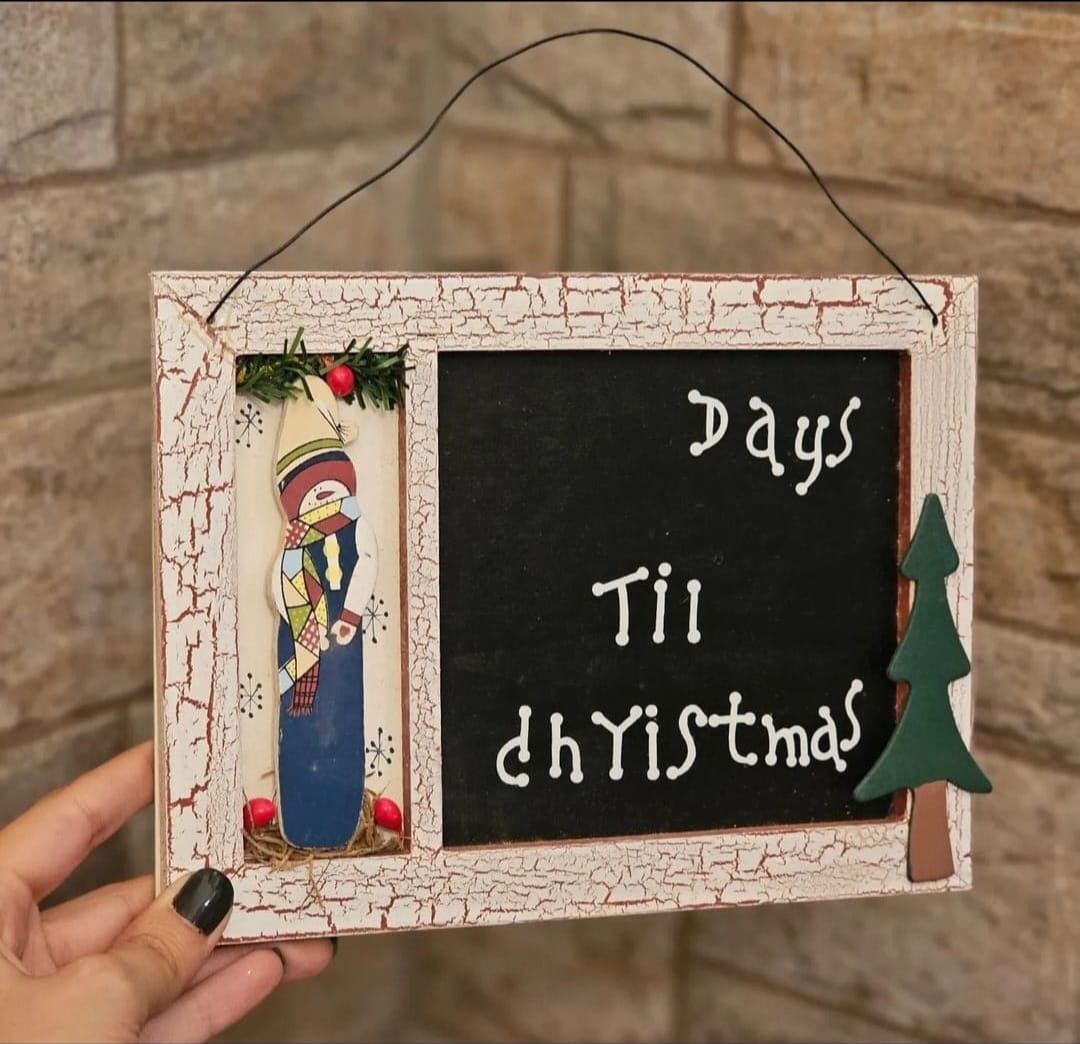 Days
Til
christmas